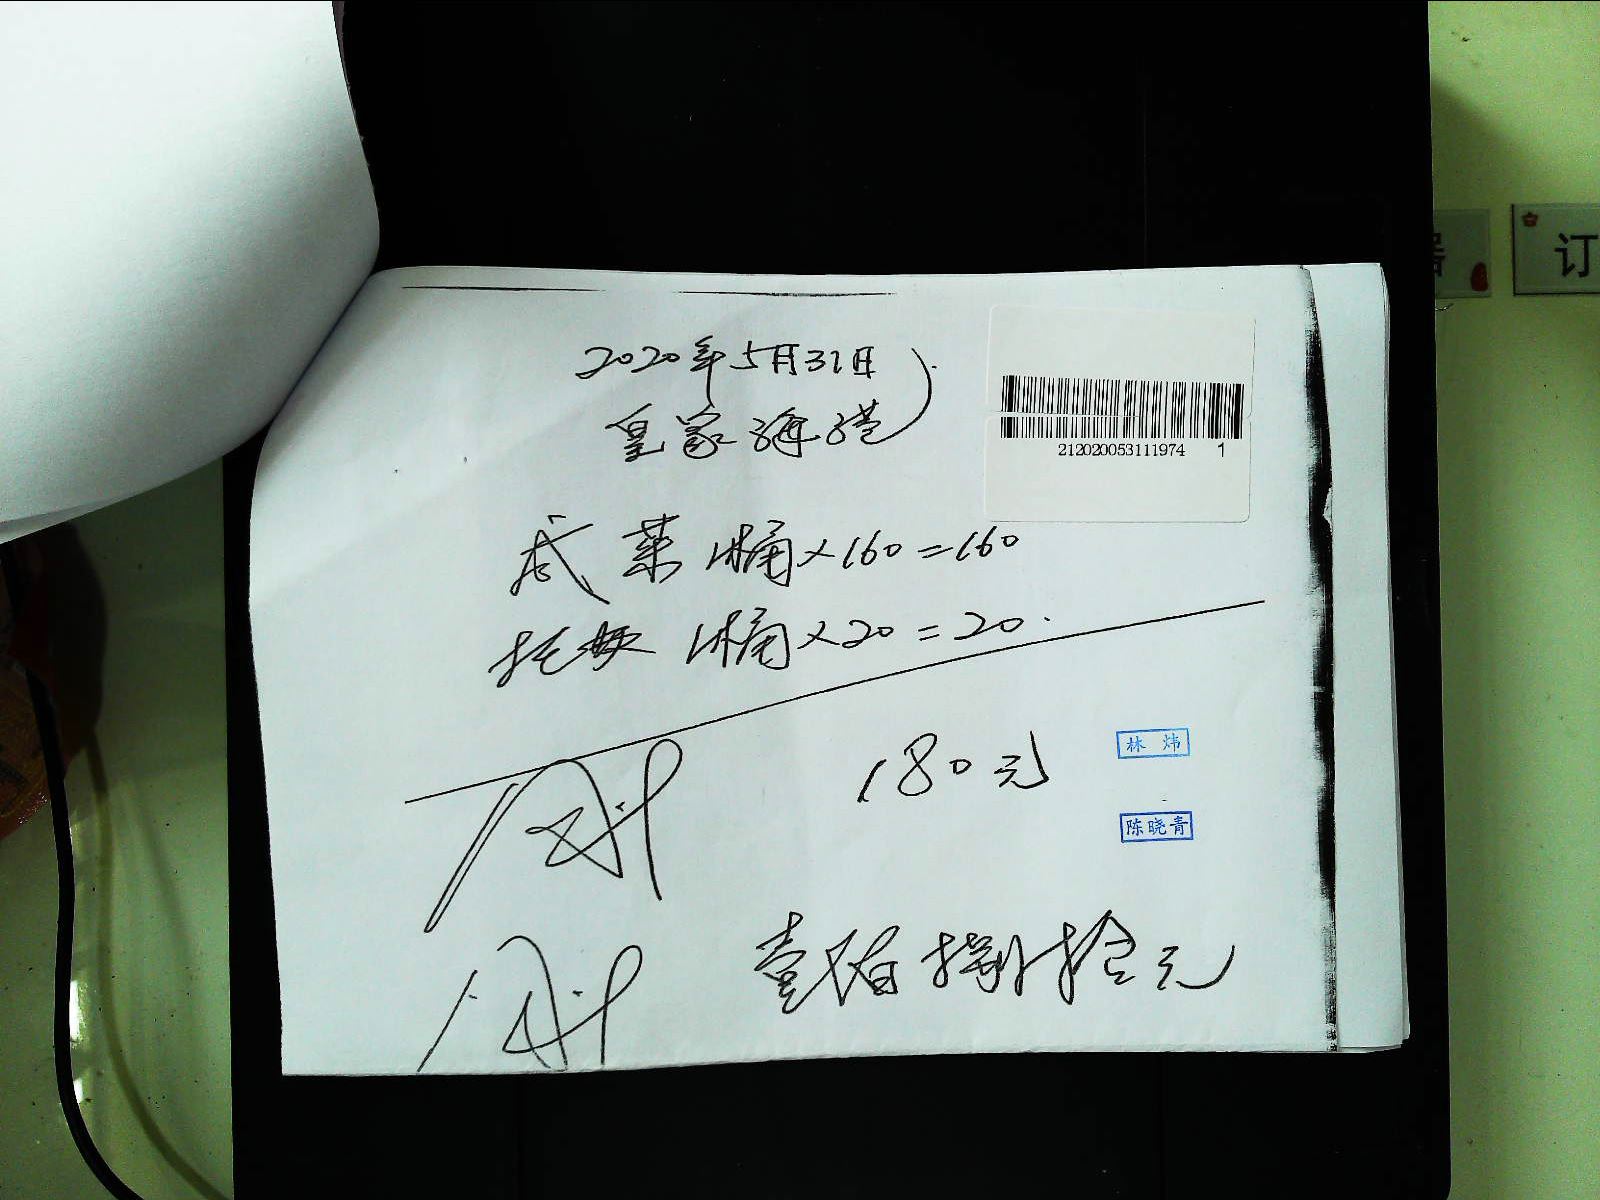 2020年5月31日
皇家海港
212020053111974 1
咸菜 1桶×160=160
1桶×20=20.
180元
林炜
陈晓青
壹佰捌拾元
订